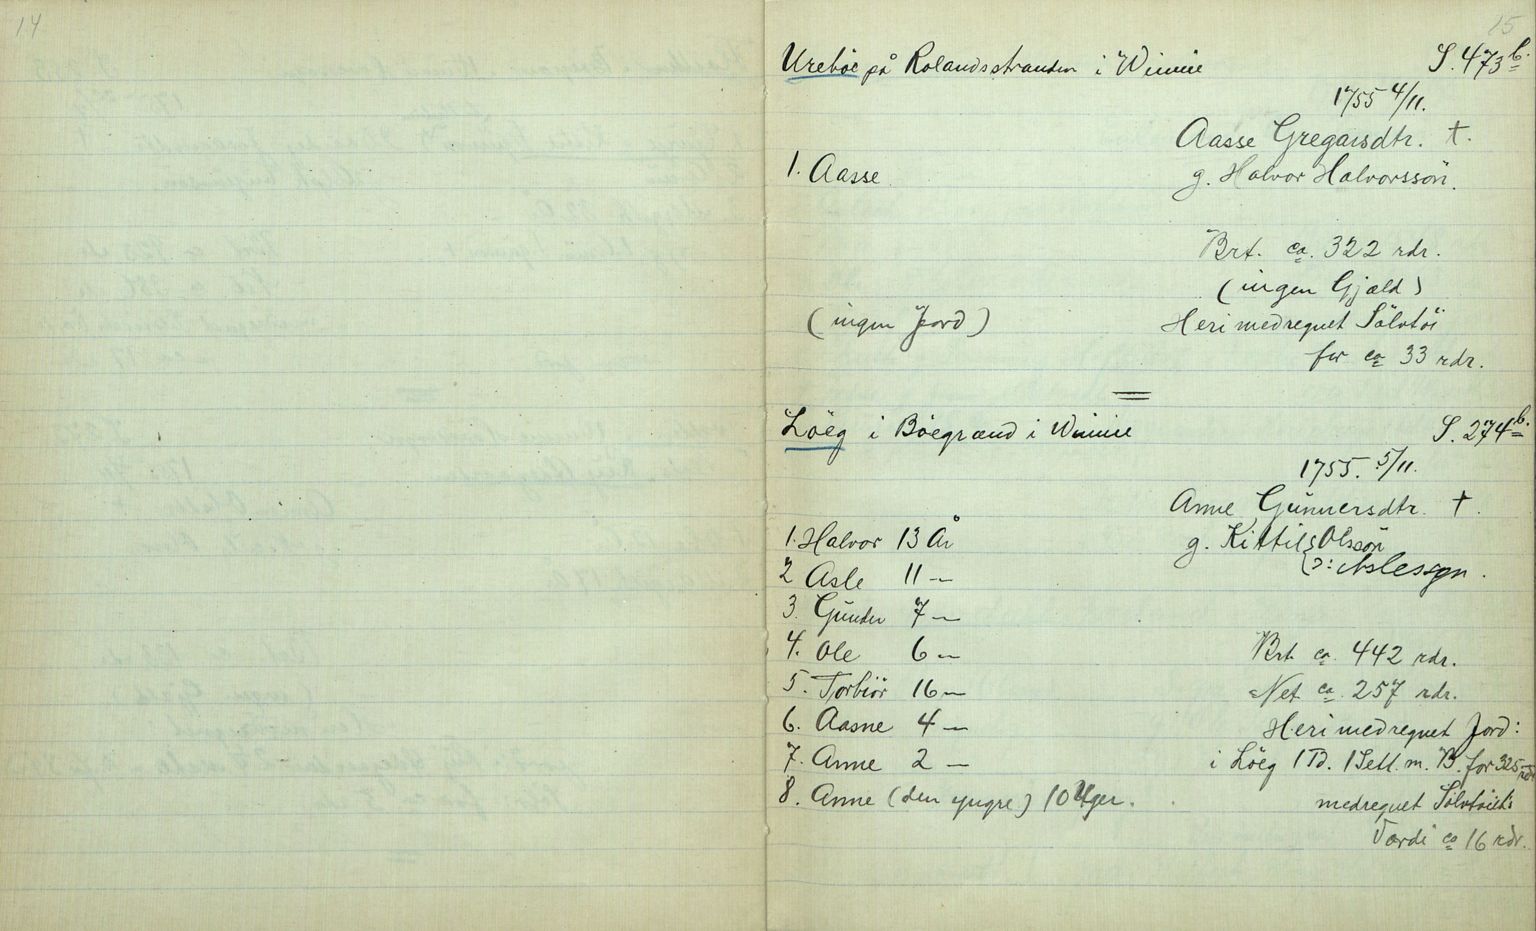 14
15
Ureböe på Rolandsstranden i Winnie S. 473b.
1755 4/11.
Aasse Gregarsdtr. †.
1. Aasse g. Halvor Halvorssön.
Brt. ca. 322 rdr.
(ingen Gjæld)
(ingen Jord) Heri medregnet Sölvtöi
for ca 33 rdr.
Löeg i Böegrænd i Winnie S. 274b.
1755. 5/11.
Anne Gunnersdtr. †.
1. Halvor 13 År g. Kittil Olssön
2 Asle 11 — (ɔ: Aslessøn.
3. Gunder 7 —
4. Ole 6 — Brt. ca. 442 rdr.
5. Torbiör 16 — Net. ca. 257 rdr.
6. Aasne 4 — Heri medregnet Jord:
7. Anne 2 — i Löeg 1 Td. 1 Sett. m. B. for 325 rdr
8. Anne (den yngre) 10 Uger. medregnet Sölvtöiets
Værdi ca 16 rdr.